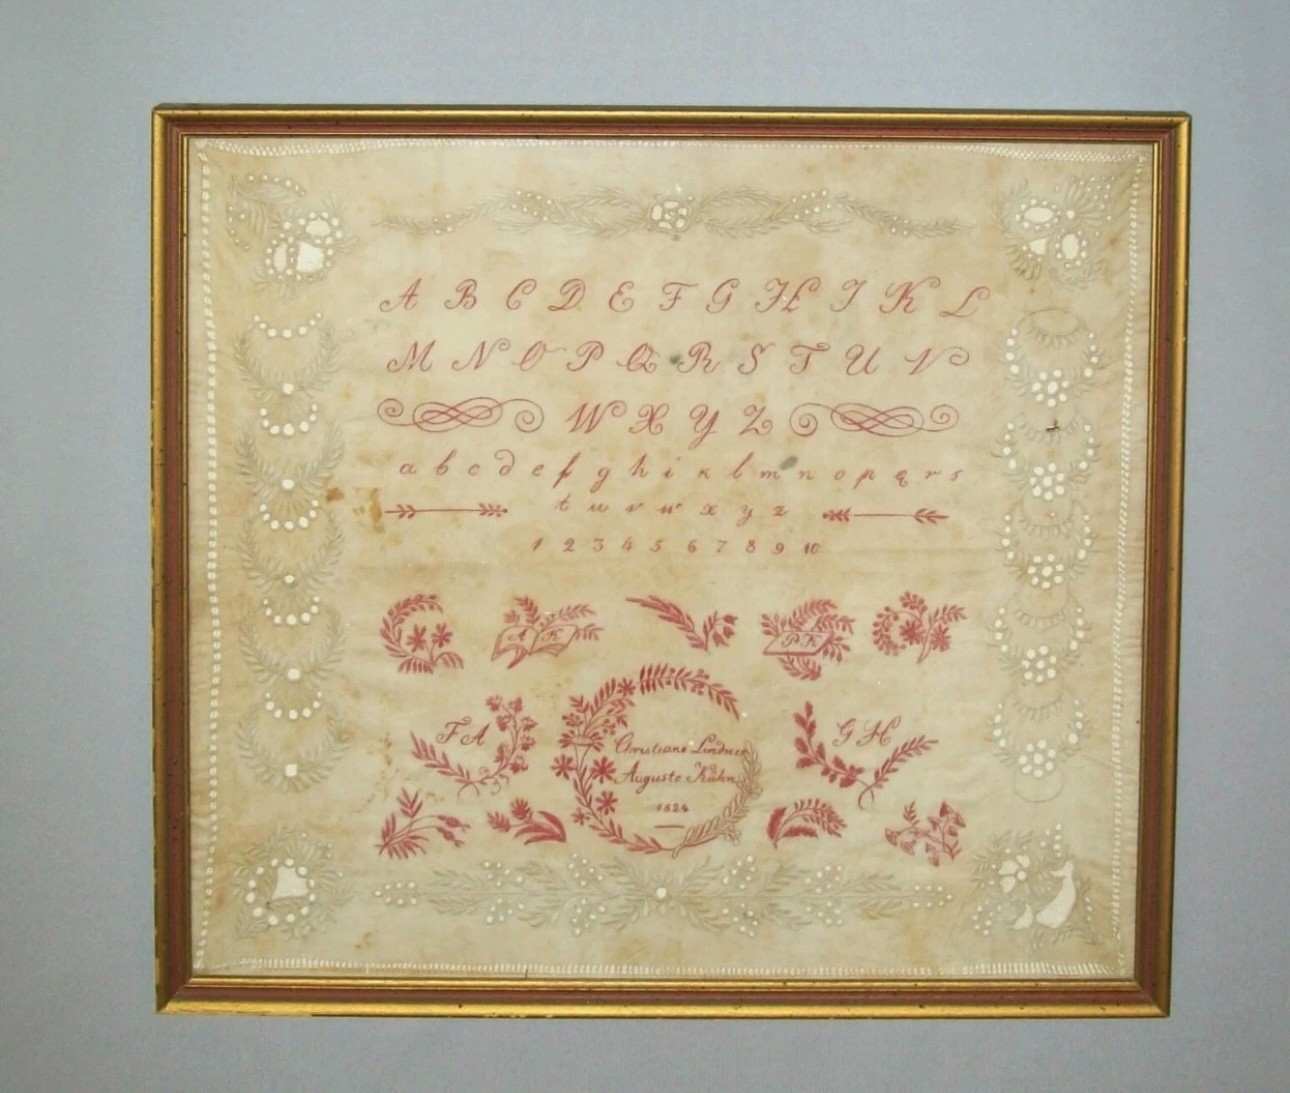 A B C D E F G H I K L
M N O P Q R S T U V
W X Y Z
a b c d e f g h i k l m n o p q r s
t u v w x y z
1 2 3 4 5 6 7 8 9 10
A K
P K
F A
G H
Christiane Lindner
Auguste Kühn
1824